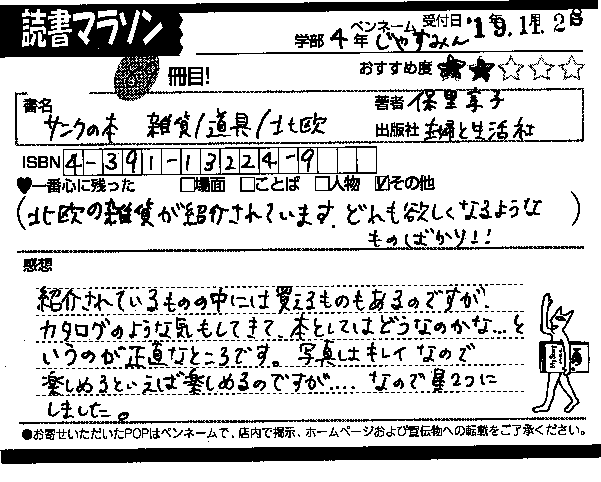 読書マラソン
学部 4 年 ペンネーム じゃすみん 受付日 '19.11.28
冊目!
おすすめ度 ★★☆☆☆
書名 サンクの本 雑貨/道具/北欧
著者 保里享子
出版社 主婦と生活社
ISBN 4-391-13224-9
♥一番心に残った □場面 □ことば □人物 ☑その他
(北欧の雑貨が紹介されています。どれも欲しくなるような
ものばかり!!)
感想
紹介されているものの中には買えるものもあるのですが、
カタログのような気もしてきて、本としてはどうなのかな…と
いうのが正直なところです。写真はキレイなので
楽しめるといえば楽しめるのですが.... なので星2つに
しました。
●お寄せいただいたPOPはペンネームで、店内で掲示、ホームページおよび宣伝物への転載をご了承ください。